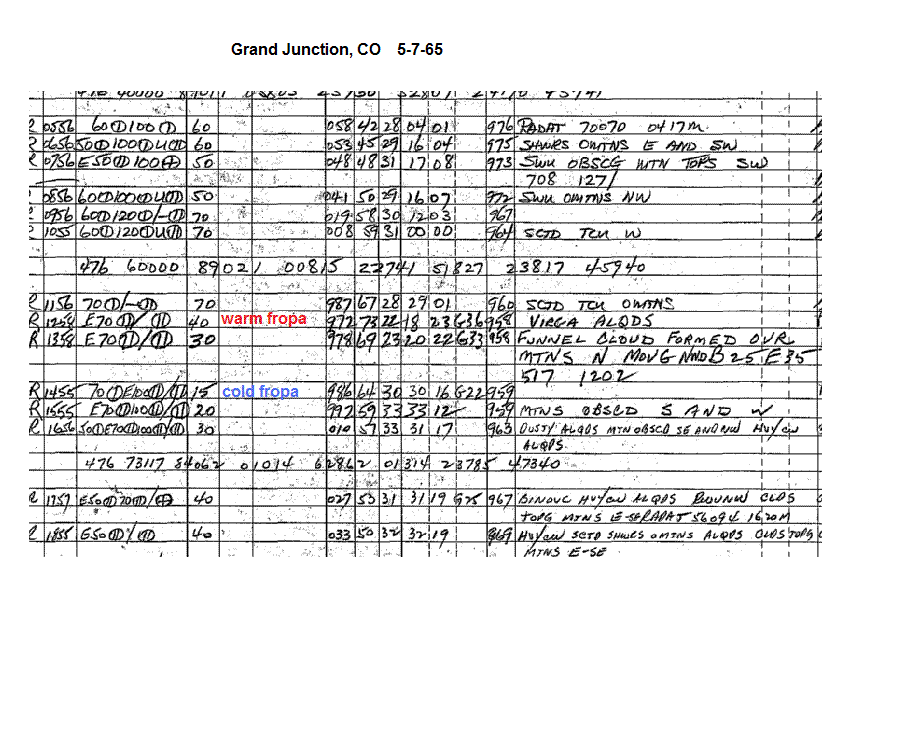 Grand Junction, CO 5-7-65
R 0556 60 100 60 058 42 28 04 01 976 RADAT 70070 0417M
R 0656 50 100 60 053 45 29 16 04 975 SHWRS OMTNS E AND SW
R 0756 E50 100 50 048 48 31 17 08 973 SWU OBSCG MTN TOPS SW
708 127/
0856 60 100 50 041 50 29 16 07 972 SWU OMTNS NW
0956 60 120 70 019 58 30 12 03 967
1055 60 120 70 008 59 31 00 00 964 SCTD TCU W
476 60000 89021 00815 22741 51827 23817 45940
R 1156 70 70 987 67 28 29 01 960 SCTD TCU OMTNS
R E70 40 warm fropa 972 73 22 18 23 G36 958 VIRGA ALQDS
R 1358 E70 30 978 69 23 20 22 G33 958 FUNNEL CLOUD FORMED OVR
MTNS N MOVG NNW B25 E35
517 1202
R 1455 70 E100 15 cold fropa 986 64 30 30 16 G22 959
R 1555 E70 100 20 992 59 33 33 12 959 MTNS OBSCD S AND W
R 1656 50 E70 100 30 010 57 33 31 17 963 DUSTY ALQDS MTN OBSCD SE AND NW HVY CU
ALQDS
476 73117 84062 01014 62862 01314 23785 47340
R 1757 E50 70 40 027 53 31 31 19 G25 967 BINOVC HVY CU ALQDS CLDS
TOPG MTNS E-SE RADAT 56094
R 1855 E50 40 033 50 32 32 19 969 HVY CU SCTD SHWRS OMTNS ALQDS CLDS TOPG
MTNS E-SE